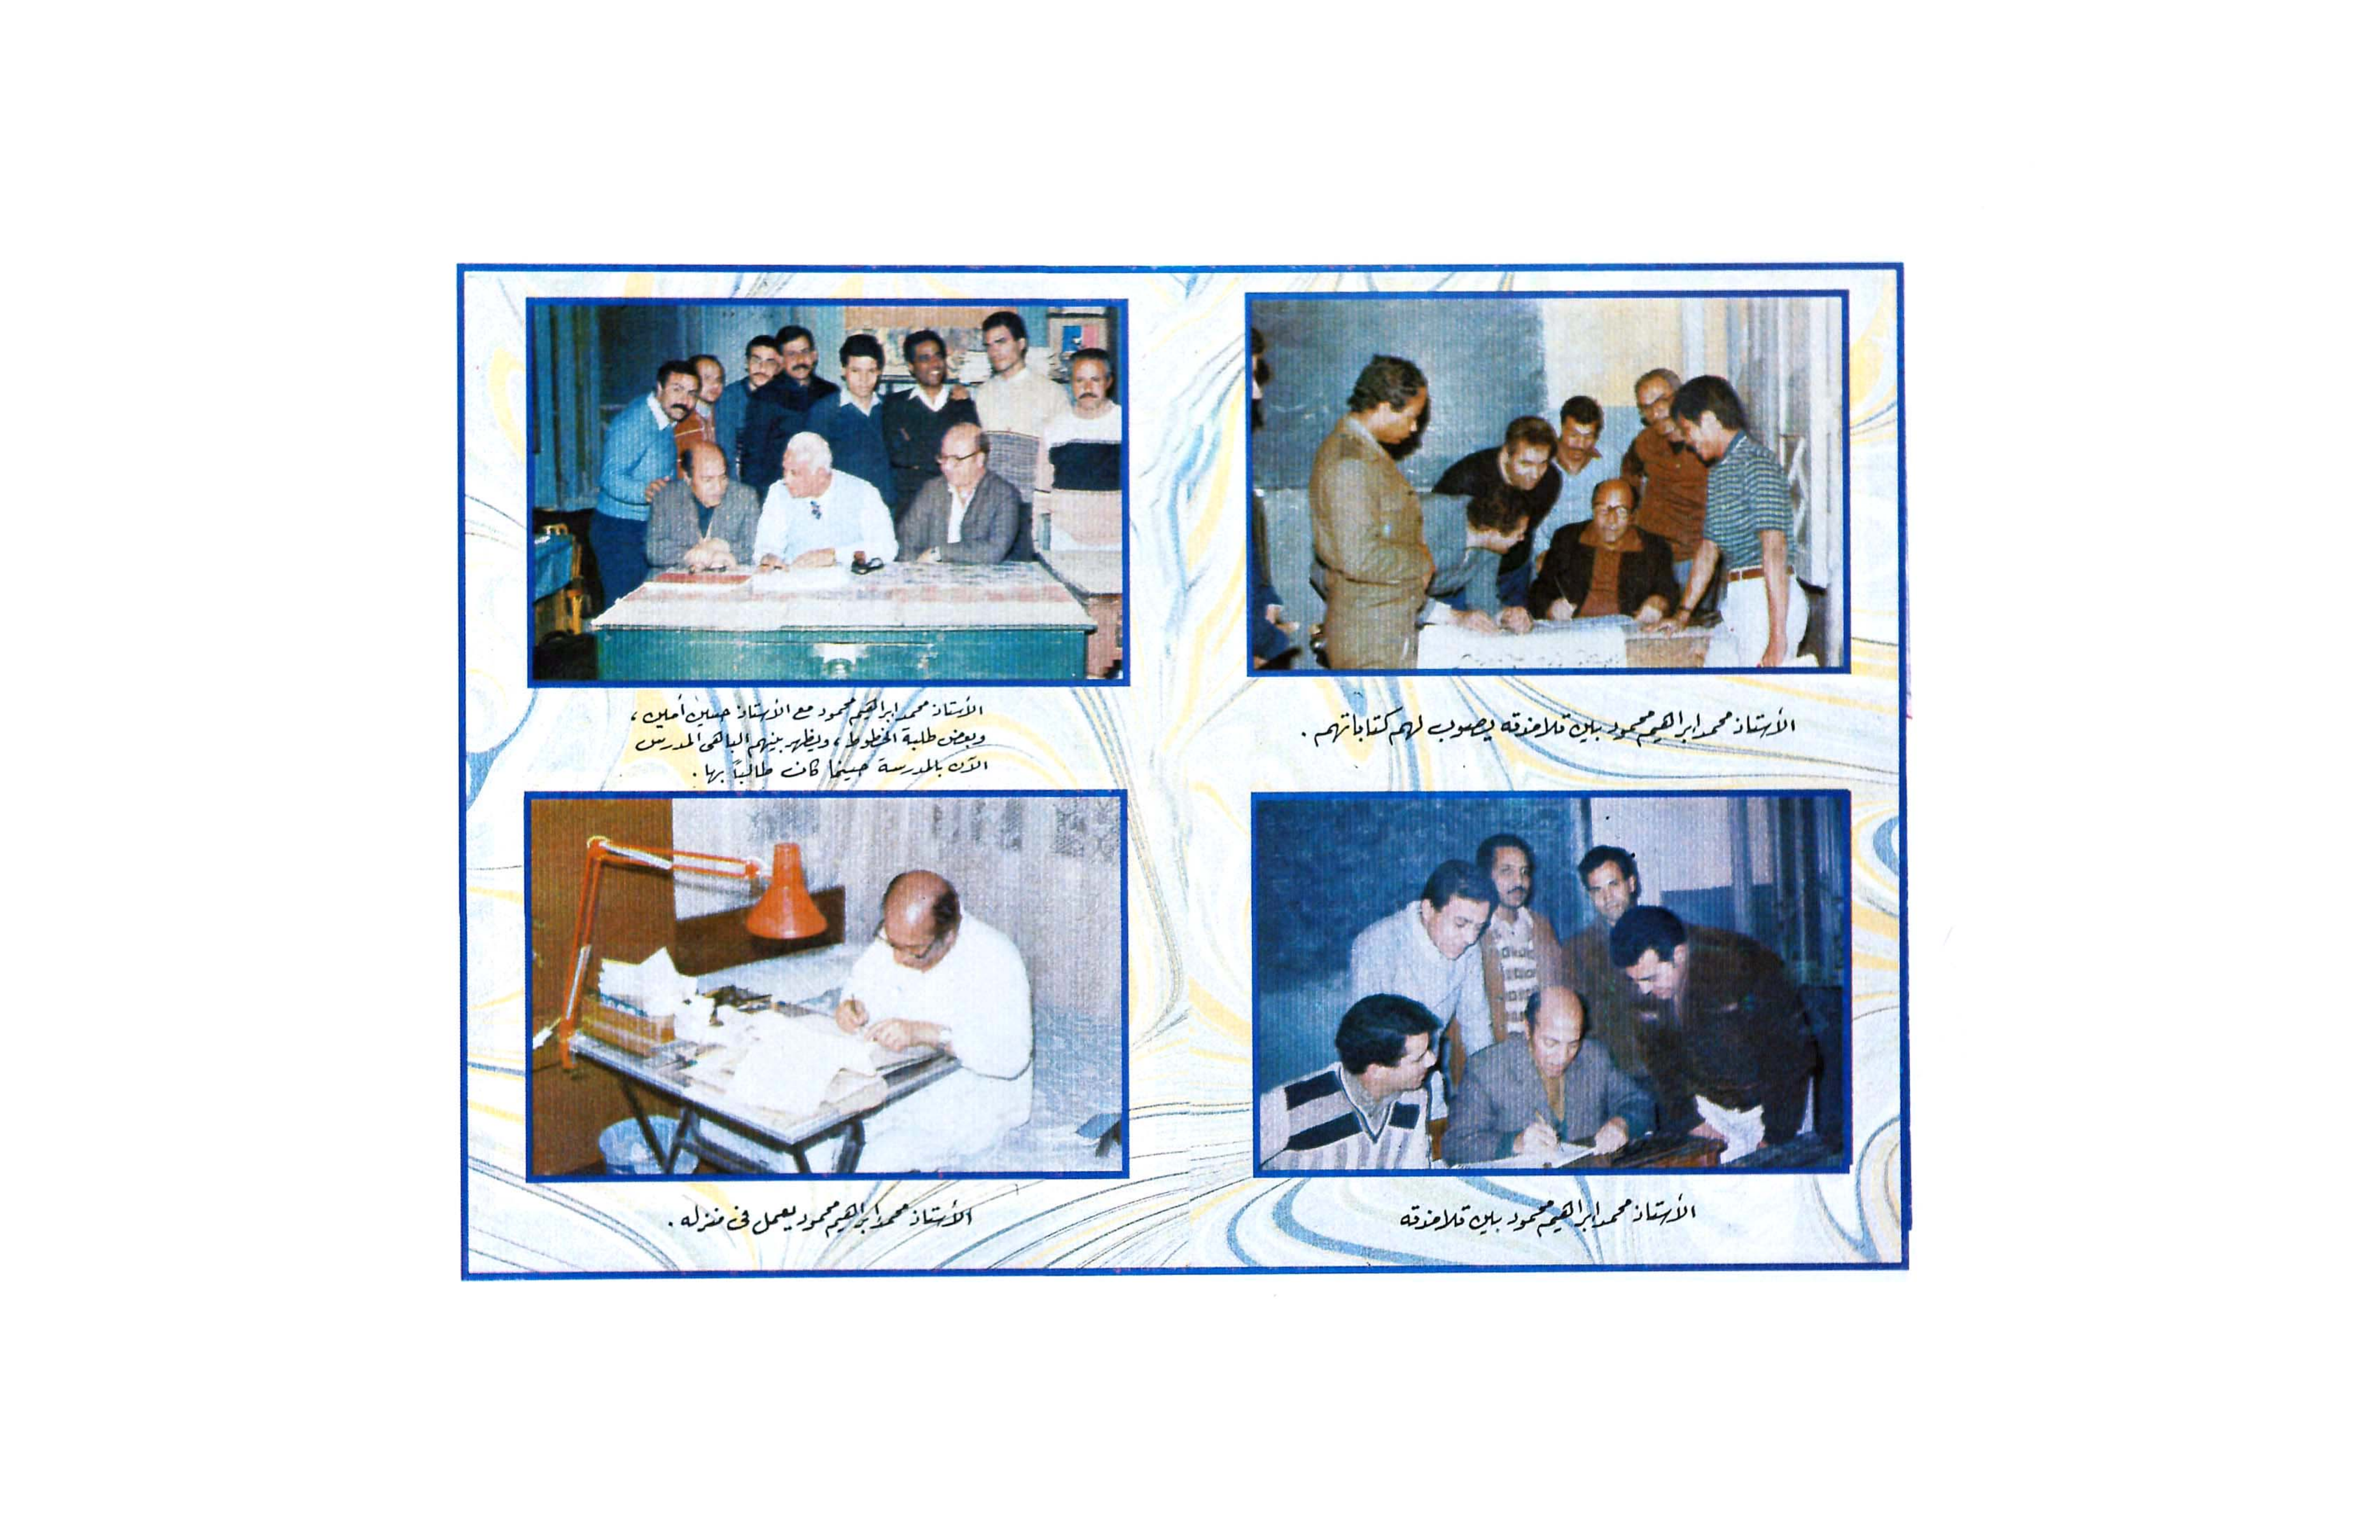 الأستاذ محمد إبراهيم محمود بين تلامذته يصوب لهم كتاباتهم .
الأستاذ محمد إبراهيم محمود مع الأستاذ حسين أمين ،
وبعض طلبة الخطوط ، ويظهر بينهم الباهى المدرس
الآن بالمدرسة حينما كان طالباً بها .
الأستاذ محمد إبراهيم محمود بين تلامذته
الأستاذ محمد إبراهيم محمود يعمل فى منزله .